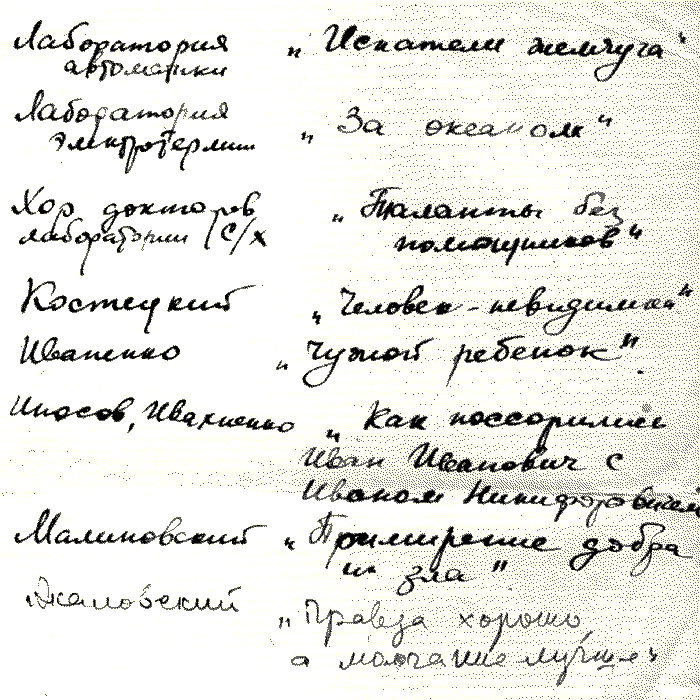 Лаборатория „Искатели жемчуга"
автоматики
Лаборатория
электротермии „За океаном"
Хор докторов „Таланты без
лаборатории С/Х помощников"
Костецкий „Человек-невидимка"
Иваненко „Чужой ребенок".
Ивахненко „Как поссорились
Иван Иванович с
Иваном Никифоровичем
Малиновский „Примирение добра
и зла".
„Правда хорошо,
а молчание лучше"